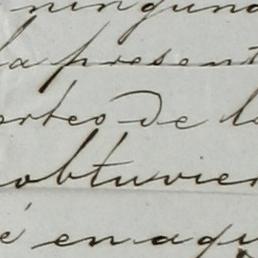 ninguna
la present
orteo de l
obtuvier
é en aqu